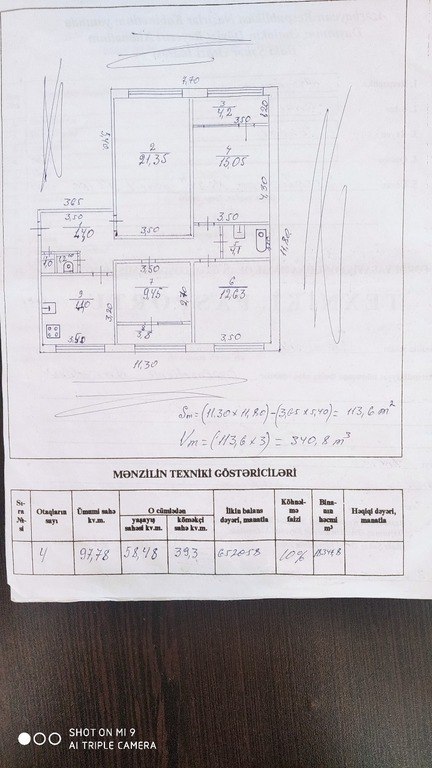 7,70
3
4,2
1,20
350
2
21,35
4
15,05
4,30
365
3,50
3,50
3,50
11,80
3,50
7
9,45
2,70
6
12,63
3,20
8
3,8
3,50
11,30
Sm=(11.30 x 11,80)-(3,65 x 5,40)= 113,6 m²
Vm=(113,6 x 3) = 340,8 m³
MƏNZİLİN TEXNİKİ GÖSTƏRİCİLƏRİ
Sı-ra №-si Otaqların sayı Ümumi sahə kv.m. O cümlədən yaşayış sahəsi kv.m. köməkçi sahə kv.m. İlkin balans dəyəri, manatla Köhnəl-mə faizi Bina-nın həcmi m³ Həqiqi dəyəri, manatla
4 97,78 58,48 39,3 10%
SHOT ON MI 9
AI TRIPLE CAMERA